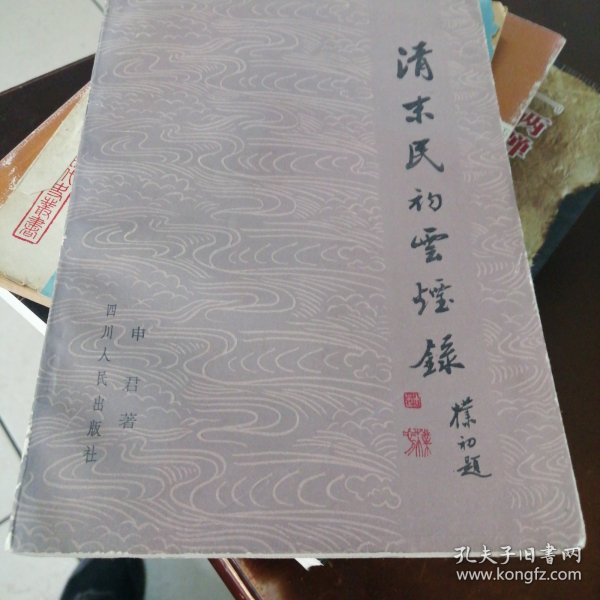 清末民初雲煙録
樸初題
申君著
四川人民出版社
代史叢書
孔夫子旧書网
www.kongfz.com